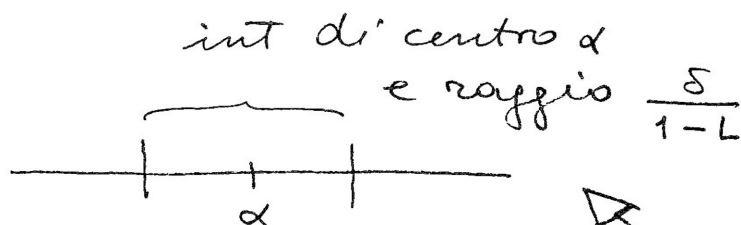 int di centro α
e raggio δ/(1-L)
α